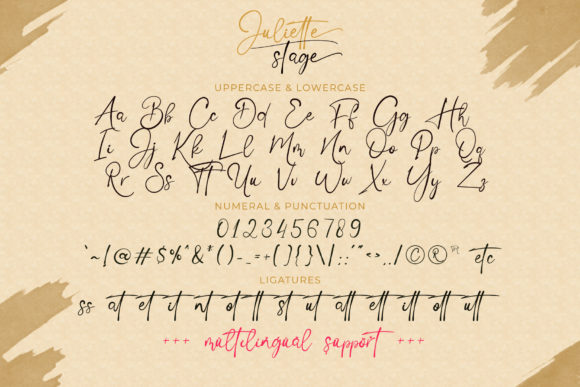 Juliette
stage
UPPERCASE & LOWERCASE
Aa Bb Cc Dd Ee Ff Gg Hh
Ii Jj Kk Ll Mm Nn Oo Pp Qq
Rr Ss Tt Uu Vv Ww Xx Yy Zz
NUMERAL & PUNCTUATION
0123456789
`~[@#$%^&*()-_=+(]{}\|;:'"<>,./©®™ etc
LIGATURES
ss at et it nt ot tt st ut att ett itt ott utt
+++ multilingual support +++